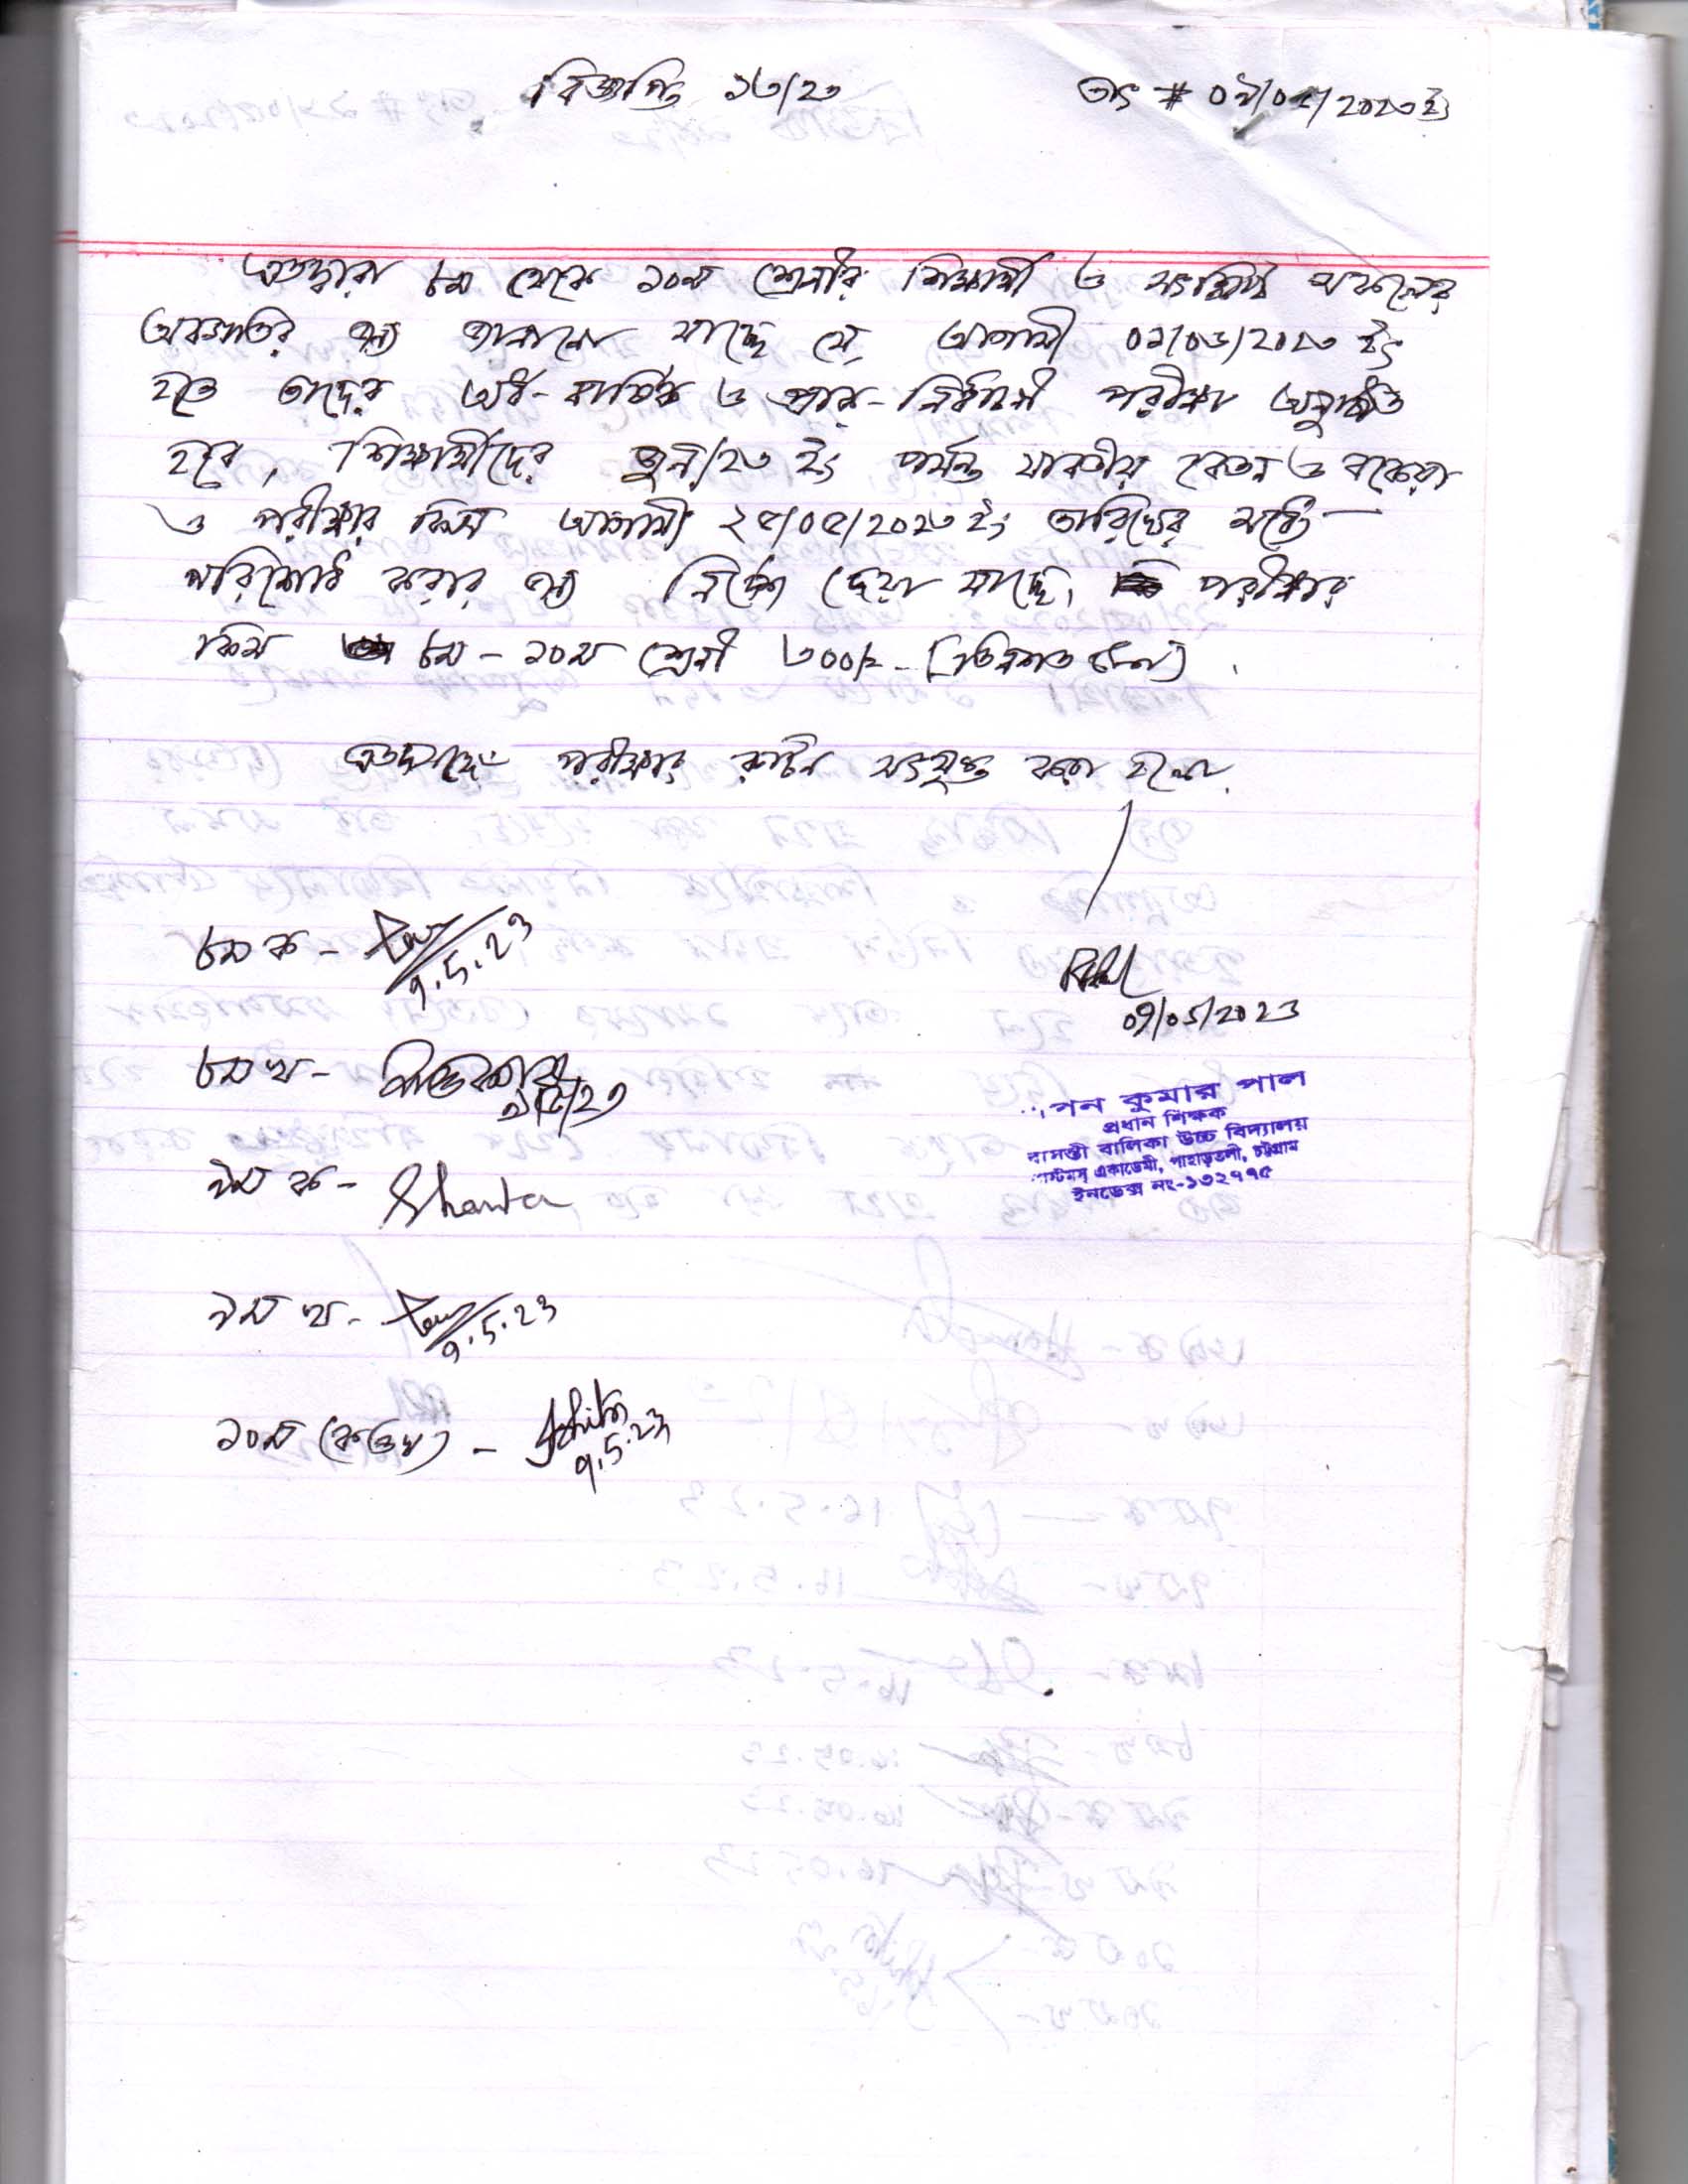 বিজ্ঞপ্তি ১৩/২৩ তাং # ০৯/০৫/২০২৩ ইং
এতদ্বারা ৮ম থেকে ১০ম শ্রেনীর শিক্ষার্থী ও সংশ্লিষ্ট সকলের
অবগতির জন্য জানানো যাচ্ছে যে, আগামী ০১/০৬/২০২৩ ইং
হতে তাদের অর্ধ-বার্ষিক ও প্রাক-নির্বাচনী পরীক্ষা অনুষ্ঠিত
হবে, শিক্ষার্থীদের জুন/২৩ ইং পর্যন্ত যাবতীয় বেতন ও বকেয়া
ও পরীক্ষার ফিস আগামী ২৫/০৫/২০২৩ ইং তারিখের মধ্যে
পরিশোধ করার জন্য নির্দেশ দেয়া যাচ্ছে, পরীক্ষার
ফিস ৮ম - ১০ম শ্রেনী ৩০০/- (তিনশত টাকা)
এতদসঙ্গে পরীক্ষার রুটিন সংযুক্ত করা হলো.
৮ম ক - 9.5.23
09/05/2023
৮ম খ -
পন কুমার পাল
প্রধান শিক্ষক
বাসন্তী বালিকা উচ্চ বিদ্যালয়
কাস্টমস্ একাডেমী, পাহাড়তলী, চট্টগ্রাম
ইনডেক্স নং-১৩২৭৭৫
৯ম ক - Shanta
৯ম খ - 9.5.23
১০ম (ক ও খ) - 9.5.23